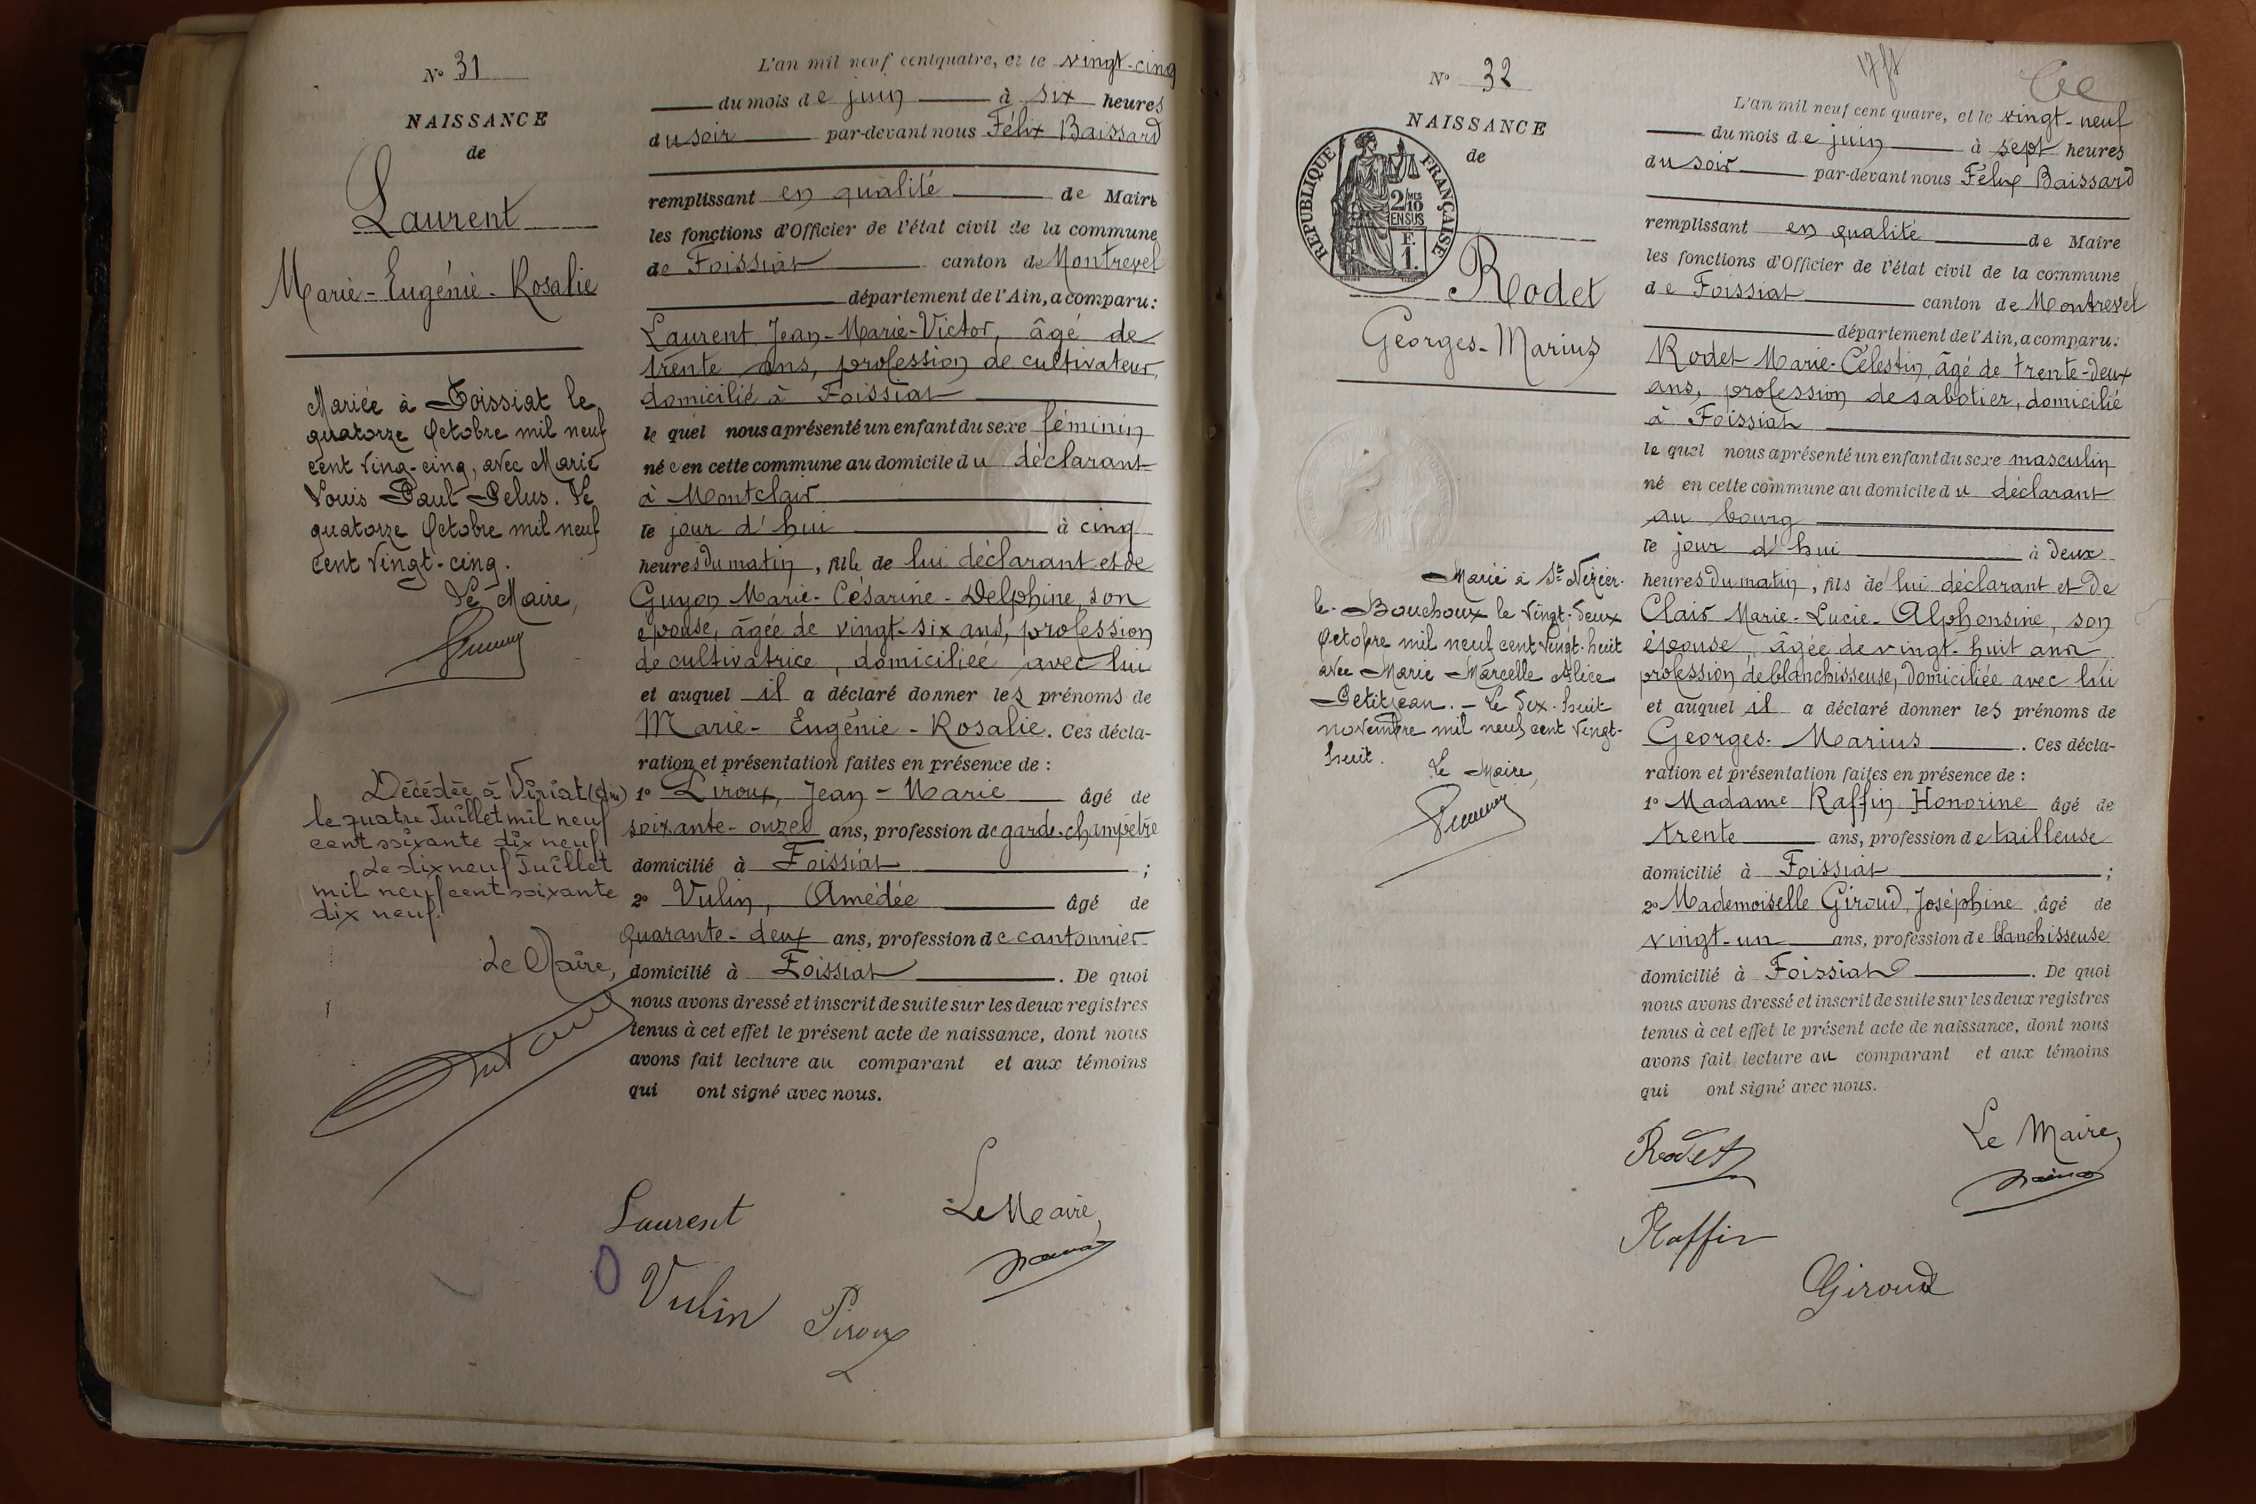 N° 31
NAISSANCE
de
Laurent
Marie-Eugénie-Rosalie
Mariée à Foissiat le
quatorze Octobre mil neuf
cent ving-cinq, avec Marie
Louis Paul Pelus. Le
quatorze Octobre mil neuf
cent vingt-cinq.
Le Maire,
Décédée à Viriat (Ain)
le quatre Juillet mil neuf
cent soixante dix neuf
Le dix neuf Juillet
mil neuf cent soixante
dix neuf.
Le Maire,
L'an mil neuf cent quatre, et le vingt-cinq
du mois de juin à six heures
du soir par-devant nous Félix Baissard
remplissant en qualité de Maire
les fonctions d'Officier de l'état civil de la commune
de Foissiat canton de Montrevel
département de l'Ain, a comparu:
Laurent Jean-Marie-Victor, âgé de
trente ans, profession de cultivateur,
domicilié à Foissiat
le quel nous a présenté un enfant du sexe féminin
née en cette commune au domicile du déclarant
à Montclair
le jour d'hui à cinq
heures du matin, fille de lui déclarant et de
Guyon Marie-Césarine-Delphine, son
épouse, âgée de vingt-six ans, profession
de cultivatrice, domiciliée avec lui
et auquel il a déclaré donner les prénoms de
Marie-Eugénie-Rosalie. Ces décla-
ration et présentation faites en présence de :
1° Piroux, Jean-Marie âgé de
soixante-onze ans, profession de garde-champêtre
domicilié à Foissiat ;
2° Vulin, Amédée âgé de
quarante-deux ans, profession de cantonnier
domicilié à Foissiat . De quoi
nous avons dressé et inscrit de suite sur les deux registres
tenus à cet effet le présent acte de naissance, dont nous
avons fait lecture au comparant et aux témoins
qui ont signé avec nous.
Laurent
Le Maire,
Vulin
Piroux
N° 32
NAISSANCE
de
RÉPUBLIQUE FRANÇAISE
2/10 MES
EN SUS
F.
1.
Rodet
Georges-Marius
Marié à St Nizier-
le-Bouchoux le vingt-deux
Octobre mil neuf cent vingt-huit
avec Marie Marcelle Alice
Petitjean. - Le dix-huit
novembre mil neuf cent vingt-
huit.
Le Maire,
L'an mil neuf cent quatre, et le vingt-neuf
du mois de juin à sept heures
du soir par-devant nous Félix Baissard
remplissant en qualité de Maire
les fonctions d'Officier de l'état civil de la commune
de Foissiat canton de Montrevel
département de l'Ain, a comparu:
Rodet Marie-Célestin, âgé de trente-deux
ans, profession de sabotier, domicilié
à Foissiat
le quel nous a présenté un enfant du sexe masculin
né en cette commune au domicile du déclarant
au bourg
le jour d'hui à deux
heures du matin, fils de lui déclarant et de
Clair Marie-Lucie-Alphonsine, son
épouse, âgée de vingt-huit ans
profession de blanchisseuse, domiciliée avec lui
et auquel il a déclaré donner les prénoms de
Georges-Marius . Ces décla-
ration et présentation faites en présence de :
1° Madame Raffin Honorine âgé de
trente ans, profession de tailleuse
domicilié à Foissiat ;
2° Mademoiselle Giroud, Joséphine âgé de
vingt-un ans, profession de blanchisseuse
domicilié à Foissiat . De quoi
nous avons dressé et inscrit de suite sur les deux registres
tenus à cet effet le présent acte de naissance, dont nous
avons fait lecture au comparant et aux témoins
qui ont signé avec nous.
Rodet
Le Maire,
Raffin
Giroud